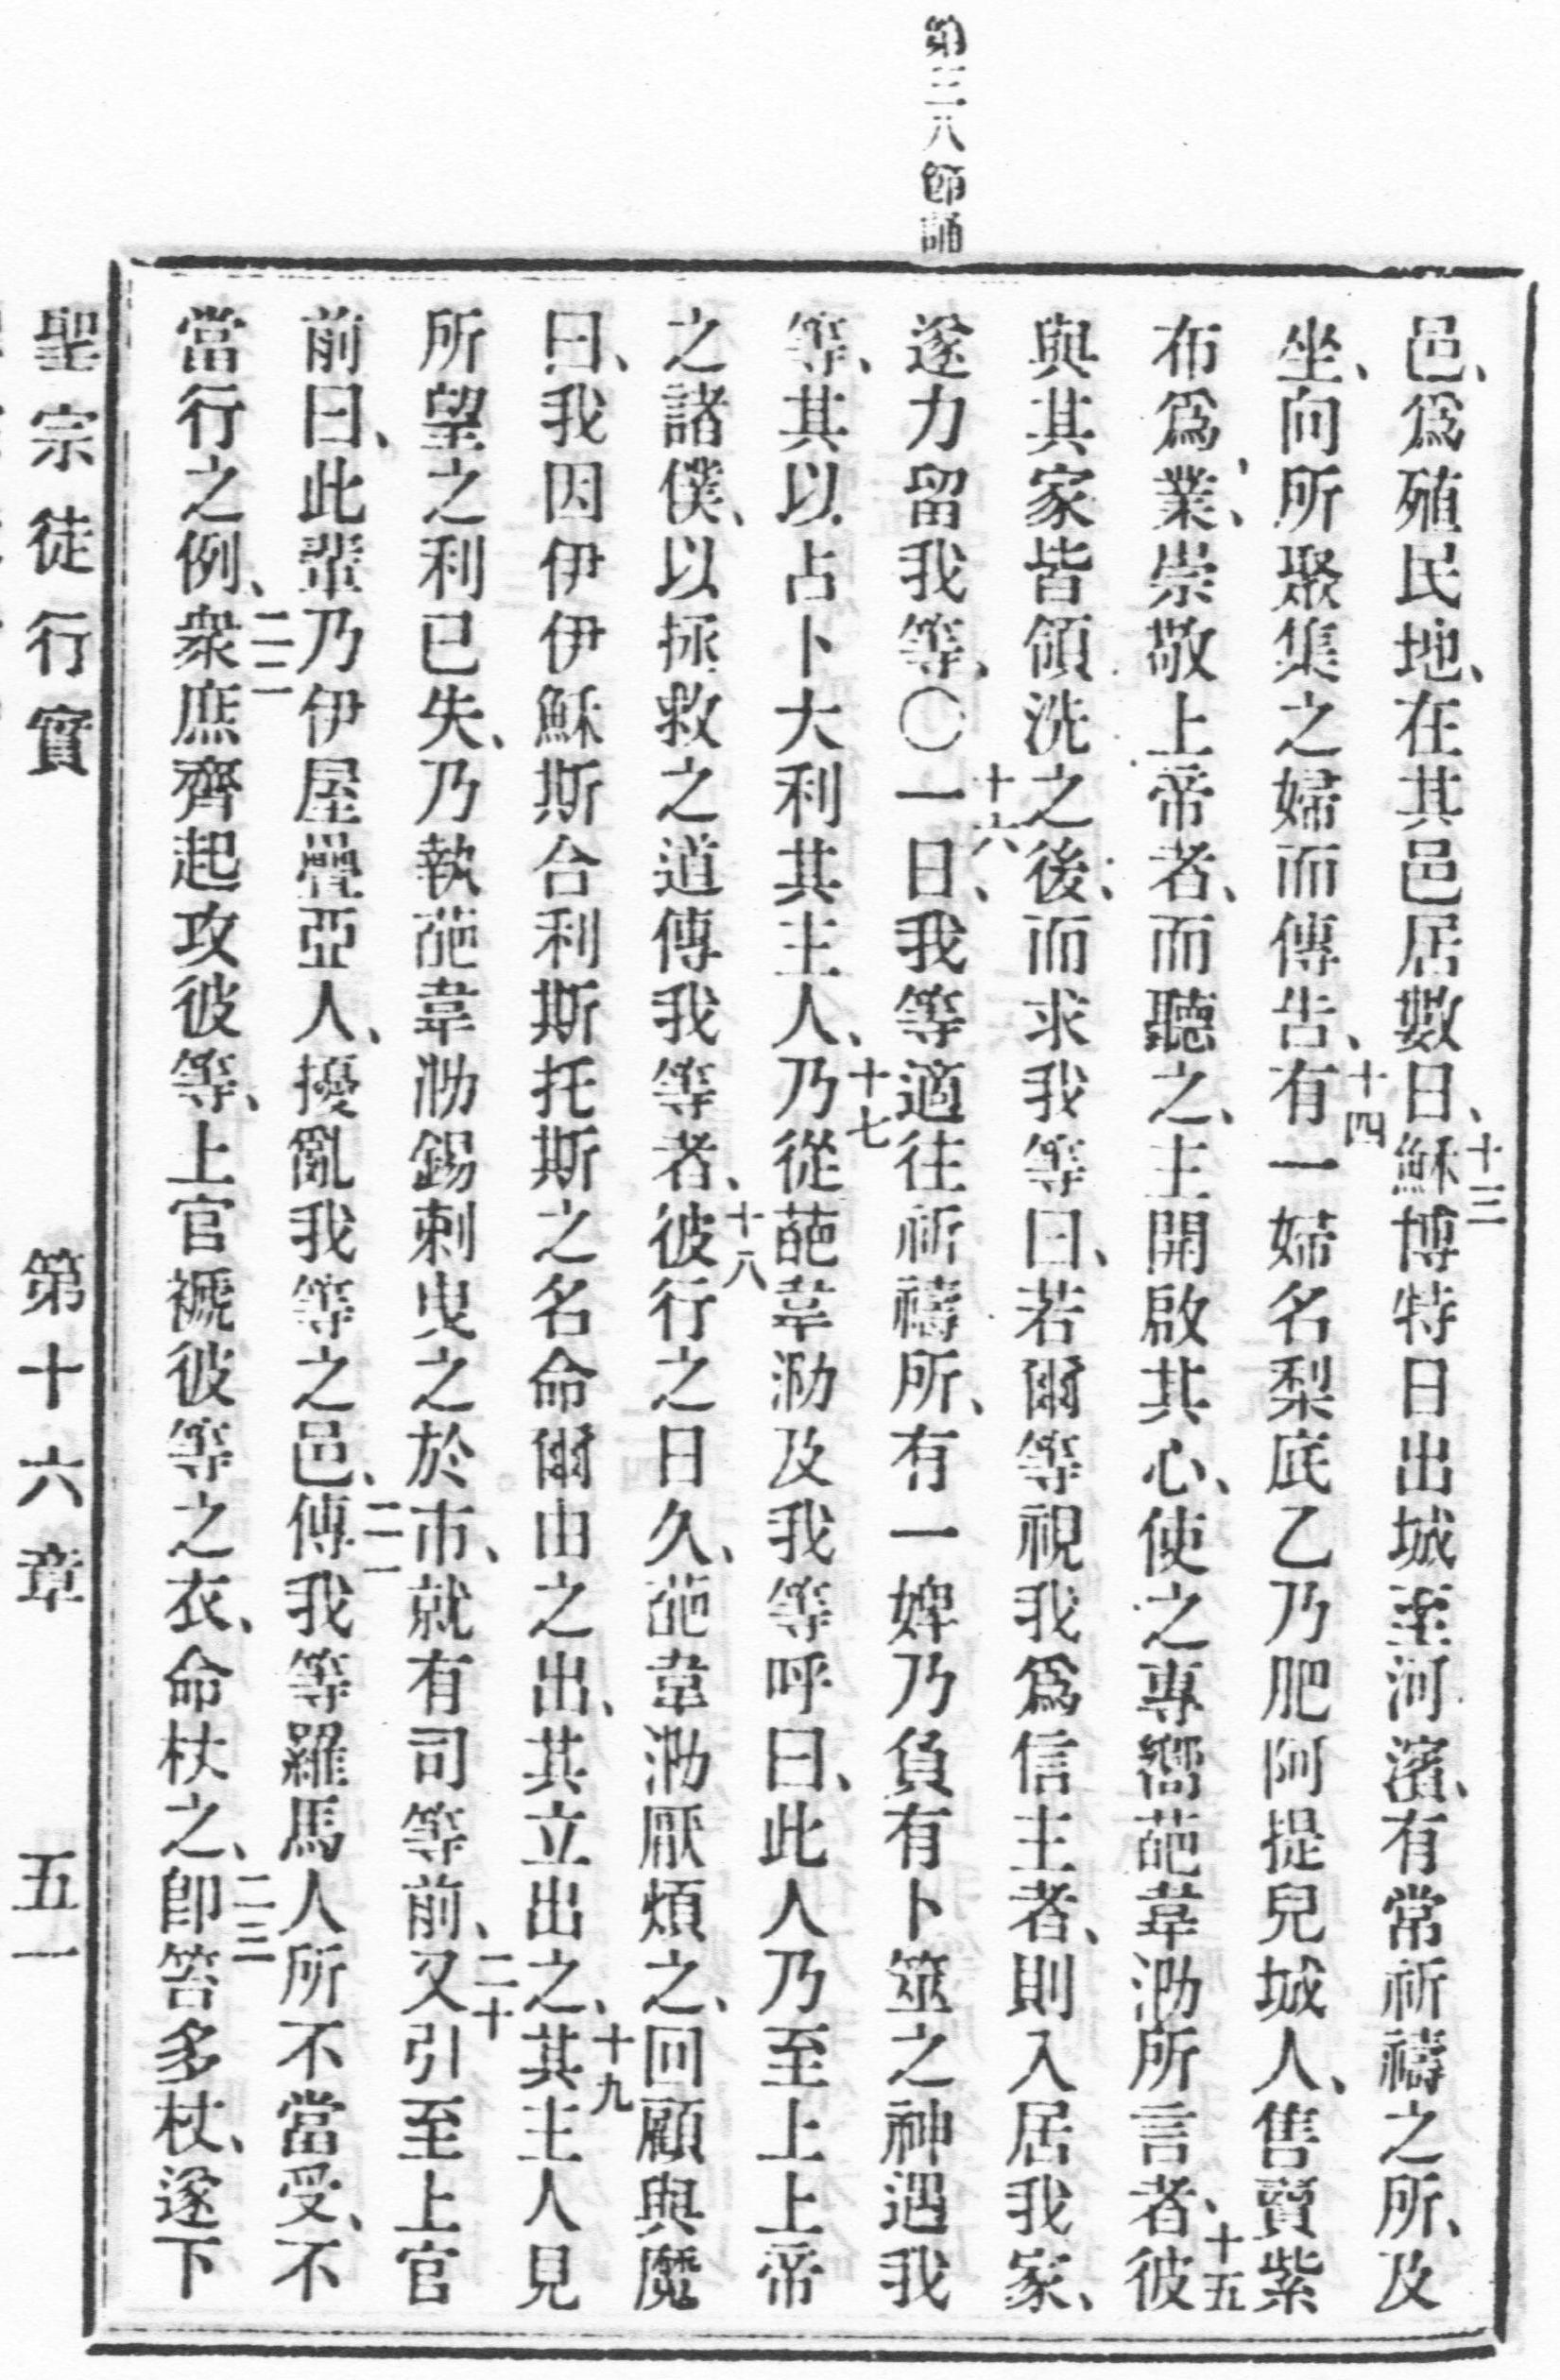 第三八節誦
邑、爲殖民地、在其邑居數日、十三穌博特日出城至河濱、有常祈禱之所、及
坐、向所聚集之婦而傳告、十四有一婦名梨底乙乃肥阿提兒城人、售賣紫
布爲業、崇敬上帝者、而聽之、主開啟其心、使之專嚮葩韋泐所言者、十五彼
與其家皆領洗之後、而求我等曰、若爾等視我爲信主者、則入居我家、
遂力留我等、〇十六一日、我等適往祈禱所、有一婢乃負有卜筮之神遇我
等、其以占卜大利其主人、十七乃從葩韋泐及我等呼曰、此人乃至上上帝
之諸僕、以拯救之道傳我等者、十八彼行之日久、葩韋泐厭煩之、回顧與魔
曰、我因伊伊穌斯合利斯托斯之名命爾由之出、其立出之、十九其主人見
所望之利已失、乃執葩韋泐錫剌曳之於市、就有司等前、二十又引至上官
前曰、此輩乃伊屋疊亞人、擾亂我等之邑、二一傳我等羅馬人所不當受、不
當行之例、二二衆庶齊起攻彼等、上官褫彼等之衣、命杖之、二三卽笞多杖、遂下
聖宗徒行實　第十六章　五一